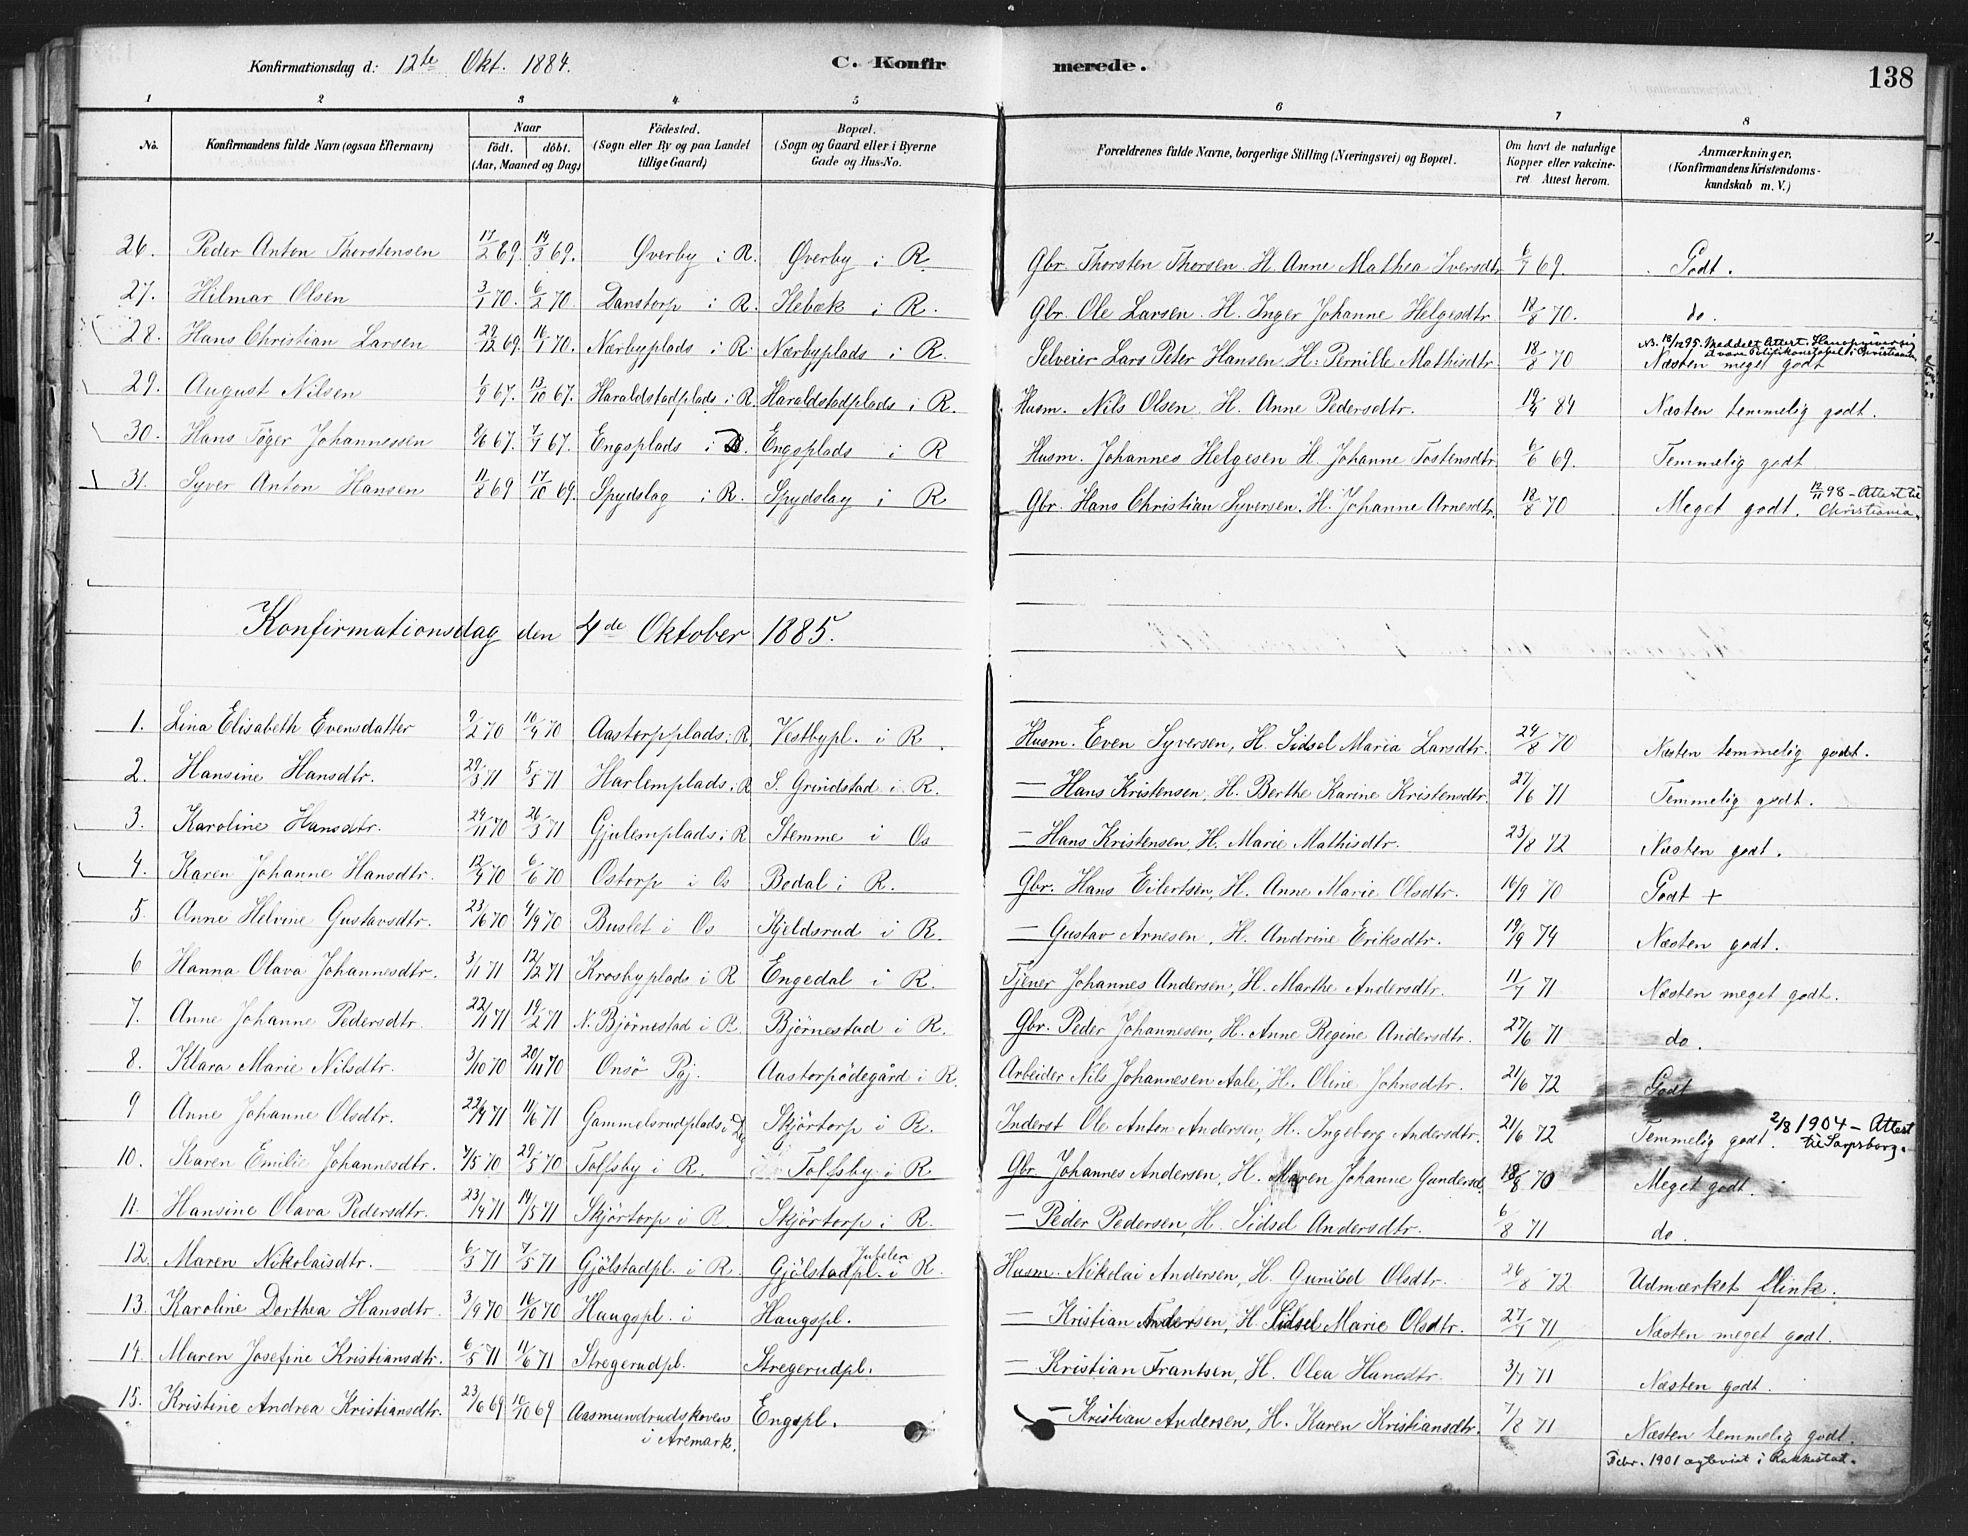 Konfirmationsdag d: 12te Okt. 1884. C. Konfirmerede. 138
1 2 3 4 5 6 7 8
No. Konfirmandens fulde Navn (ogsaa Efternavn) Naar født. døbt. (Aar, Maaned og Dag) Fødested. (Sogn eller By og paa Landet tillige Gaard) Bopæl. (Sogn og Gaard eller i Byerne Gade og Hus-No. Forældrenes fulde Navne, borgerlige Stilling (Næringsvei) og Bopæl. Om havt de naturlige Kopper eller vakcineret Attest herom. Anmærkninger. (Konfirmandens Kristendomskundskab m. V.)
26. Peder Anton Thorstensen 17/2 69. 14/3 69. Øverby i R. Øverby i R. Gbr. Thorsten Thorsen. H. Anne Mathea Iversdtr 6/7 69. Godt.
27. Hilmar Olsen 3/1 70. 6/2 70. Danstorp i R. Hebæk i R. Gbr. Ole Larsen. H. Inger Johanne Helgesdtr 18/8 70. do.
28. Hans Christian Larsen 29/12 69. 16/1 70. Nærbyplads i R. Nærbyplads i R. Selveier Lars Peter Hansen. H. Pernille Mathisdtr. 18/8 70 Næsten meget godt
29. August Nilsen 1/9 67. 13/10 67. Haraldstadplads i R. Haraldstadplads i R. Husm. Nils Olsen. H. Anne Pedersdtr. 19/4 84 Næsten temmelig godt.
30. Hans Tøger Johannessen 8/6 67. 7/7 67. Engsplads i R. Engsplads i R Husm. Johannes Helgesen H. Johanne Tostensdtr 6/6 69. Temmelig godt
31. Syver Anton Hansen 11/8 69 17/10 69. Spydslag i R. Spydslag i R Gbr. Hans Christian Syversen. H. Johanne Arnesdtr. 18/8 70 Meget godt. 12/11 98 – Attest til Christiania.
Konfirmationsdag den 4de Oktober 1885.
1. Lina Elisabeth Evensdatter 9/2 70 10/4 70 Aastorpplads i R Vestbypl. i R. Husm. Even Syversen, H. Sidsel Maria Larsdtr. 24/8 70 Næsten temmelig godt.
2. Hansine Hansdtr. 29/3 71 5/5 71 Harlemplads i R S. Grindstad i R. — Hans Kristensen, H. Berthe Karine Kristensdtr. 27/6 71 Temmelig godt.
3. Karoline Hansdtr. 24/11 70 26/3 71 Gjulemplads i R Stemme i Os — Hans Kristensen, H. Marie Mathisdtr. 23/8 72 Næsten godt.
4. Karen Johanne Hansdtr. 12/4 70 6/6 70 Ostorp i Os Bedal i R. Gbr. Hans Eilertsen, H. Anne Marie Olsdtr. 16/9 70 Godt +
5. Anne Helvine Gustavsdtr. 23/6 70 4/9 70 Buslet i Os Kjeldsrud i R. — Gustav Arnesen, H. Andrine Eriksdtr. 19/9 74 Næsten godt.
6 Hanna Olava Johannesdtr. 3/11 71 12/2 71 Krosbyplads i R Engedal i R. Tjener Johannes Andersen, H. Marthe Andersdtr. 11/7 71 Næsten meget godt.
7. Anne Johanne Pedersdtr. 22/11 71 19/2 71 N. Bjørnestad i R. Bjørnestad i R. Gbr. Peder Johannesen, H. Anne Regine Andersdtr. 27/6 71 do.
8. Klara Marie Nilsdtr. 3/10 70 20/11 70 Onsø Pgj. Aastorpødegård i R. Arbeider Nils Johannesen Aale, H. Oline Johnsdtr. 21/6 72 Godt
9 Anne Johanne Olsdtr. 22/4 71 11/6 71 Gammelsrudplads i Skjørtorp i R. Inderst Ole Anton Andersen, H. Ingeborg Andersdtr. 21/6 72 Temmelig godt. 2/8 1904 – Attest til Sarpsborg.
10. Karen Emilie Johannesdtr. 7/5 70 29/5 70 Tolfsby i R. Tolfsby i R Gbr. Johannes Andersen, H. Maren Johanne Gundersd. 18/8 70 Meget godt.
11. Hansine Olava Pedersdtr. 23/4 71 14/5 71 Skjørtorp i R. Skjørtorp i R. — Peder Pedersen, H. Sidsel Andersdtr. 6/8 71 do.
12. Maren Nikolaisdtr. 6/3 71 7/5 71 Gjølstadpl. i R. Gjølstadpl. i R. Husm. Nikolai Andersen, H. Gunild Olsdtr. 26/8 72 Udmærket flink.
13. Karoline Dorthea Hansdtr. 3/9 70 16/10 70 Haugspl. i Haugspl. — Kristian Andersen, H. Sidsel Marie Olsdtr. 27/7 71 Næsten meget godt.
14. Maren Josefine Kristiansdtr. 6/5 71 11/6 71 Stregerudpl. Stregerudpl. — Kristian Frantsen, H. Olea Hansdtr. 3/7 71 Næsten godt.
15. Kristine Andrea Kristiansdtr. 23/6 69 10/10 69 Aasmundrudskoven i Aremark. Engspl. — Kristian Andersen, H. Karen Kristiansdtr. 7/8 71 Næsten temmelig godt.
Febr. 1901 ægteviet i Rakkestad.